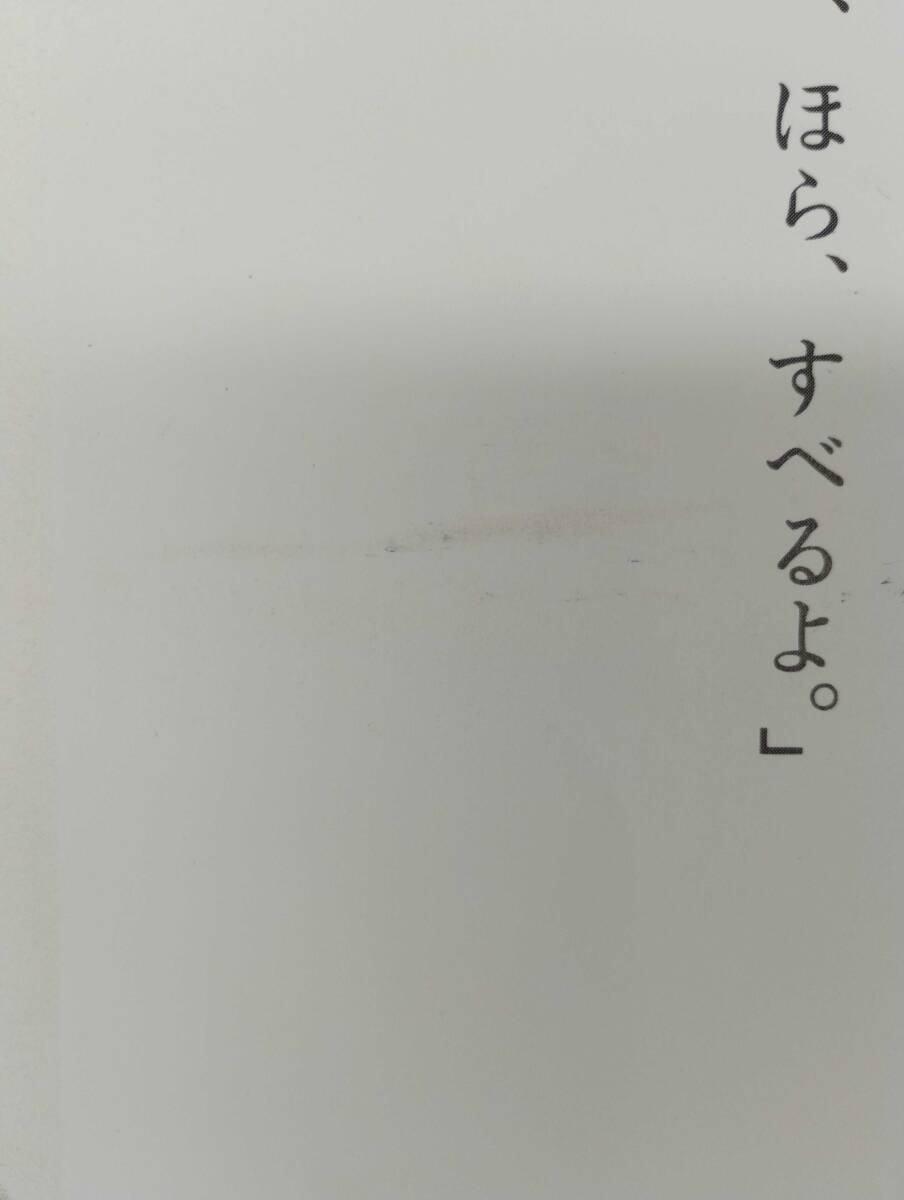 、ほら、すべるよ。」